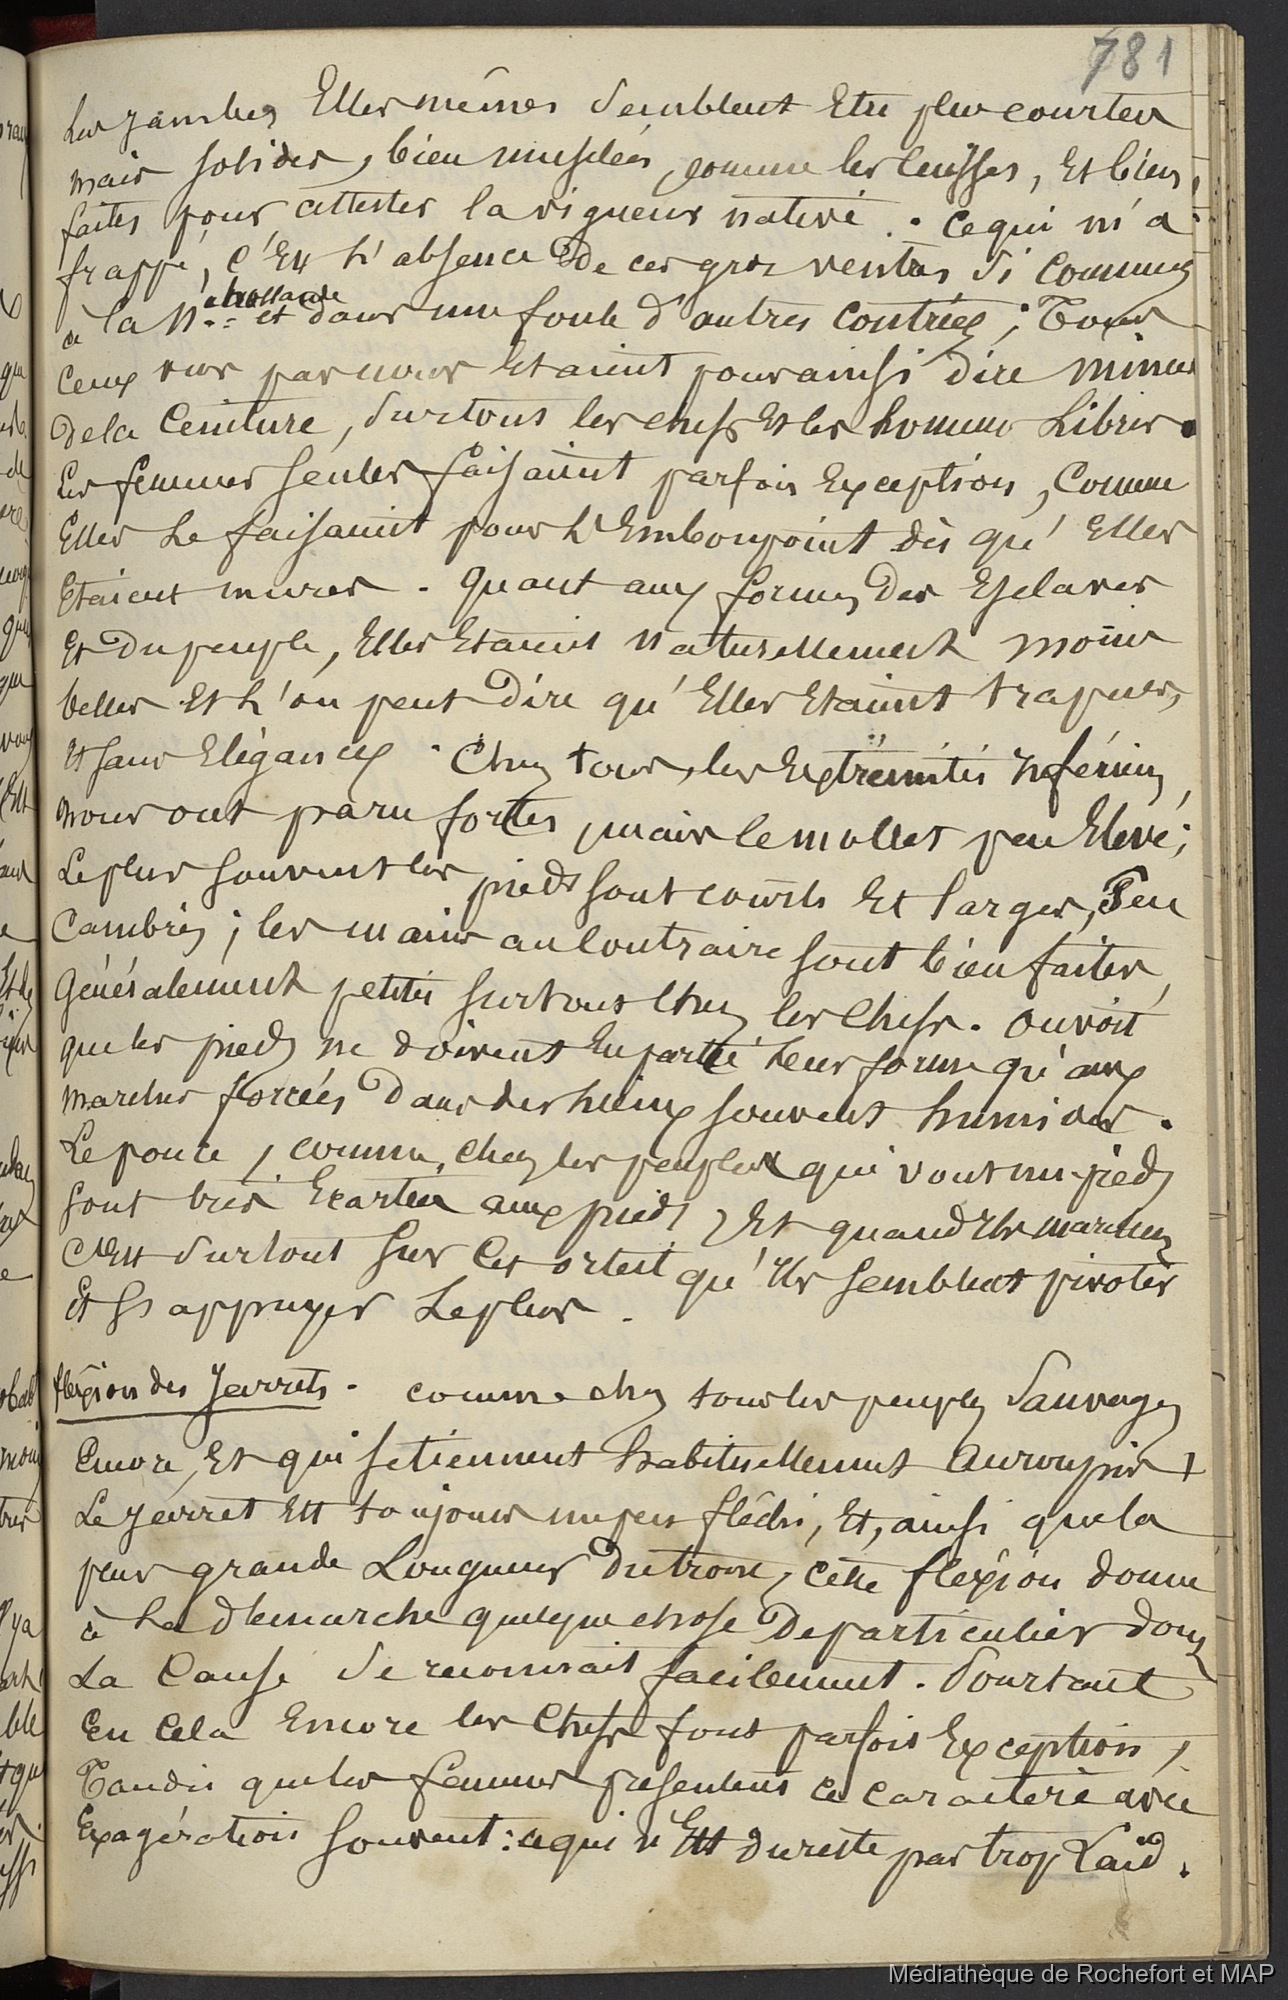 781
Les jambes Elles mêmes Semblent Etre plus courtes
mais solides, bien musclées, comme les cuisses, Et bien
faites pour attester la vigueur native. Ce qui m'a
frappé, C'Est L'absence De ces gros ventres Si communs
hollande
à la Nlle et dans une foule d'autres Contrées ; Tous
Ceux vus par nous Etaient pour ainsi Dire minces
De la Ceinture, Surtout les chefs Et les hommes Libres.
Les femmes seules faisaient parfois Exception, Comme
Elles Le faisaient pour L'Embonpoint dès qu'Elles
Etaient mures. Quant aux formes Des Esclaves
Et Du peuple, Elles Etaient Naturellement moins
belles Et L'on peut Dire qu'Elles Etaient trapues,
Et sans Elégances. Chez tous, les Extrémités Inférieures
nous ont paru fortes, mais le mollet peu Elevé ;
Le plus souvent les pieds sont courts Et larges, Peu
Cambrés ; les mains au Contraire sont bien faites,
Généralement petites surtout Chez les Chefs. On voit
que les pieds ne doivent En partie leur forme qu'aux
marches forcées Dans des Lieux souvent humides.
Le pouce, comme, chez les peuples qui vont nu-pieds
sont très Ecartés aux pieds, Et quand Ils marchent
C'Est Surtout sur Cet orteil qu'Ils semblent pivoter
Et Ss appuyer Le plus.
flexion des Jarrets. comme chez tous les peuples Sauvages
Encore, Et qui se tiennent habituellement Accroupis
Le Jarret Est toujours un peu fléchi, Et, ainsi que la
plus grande Longueur Du tronc, cette flexion donne
à La démarche quelque chose De particulier dont
La Cause Se reconnait facilement. Pourtant
En Cela Encore les Chefs font parfois Exception,
Tandis que les femmes présentent ce caractère avec
Exagération souvent : ce qui n'Est du reste pas trop Laid.
Médiathèque de Rochefort et MAP